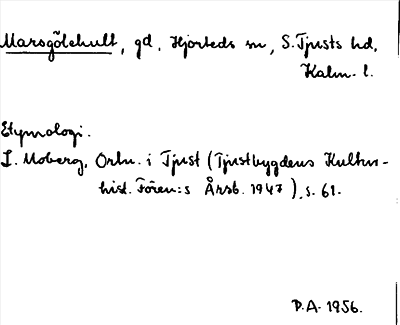 Marsgölehult, gd, Hjorteds sn, S. Tjusts hd,
Kalm. l.
Etymologi.
I. Moberg, Ortn. i Tjust (Tjustbygdens Kultur-
hist. Fören:s Årsb. 1947), s. 61.
P.A. 1956.